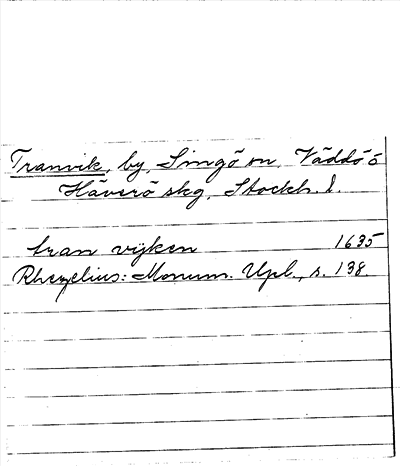 Tranvik, by, Singö sn, Väddö ö
Häverö skg, Stockh. l.
tran vijken 1635
Rhezelius: Monum. Upl., s. 138.